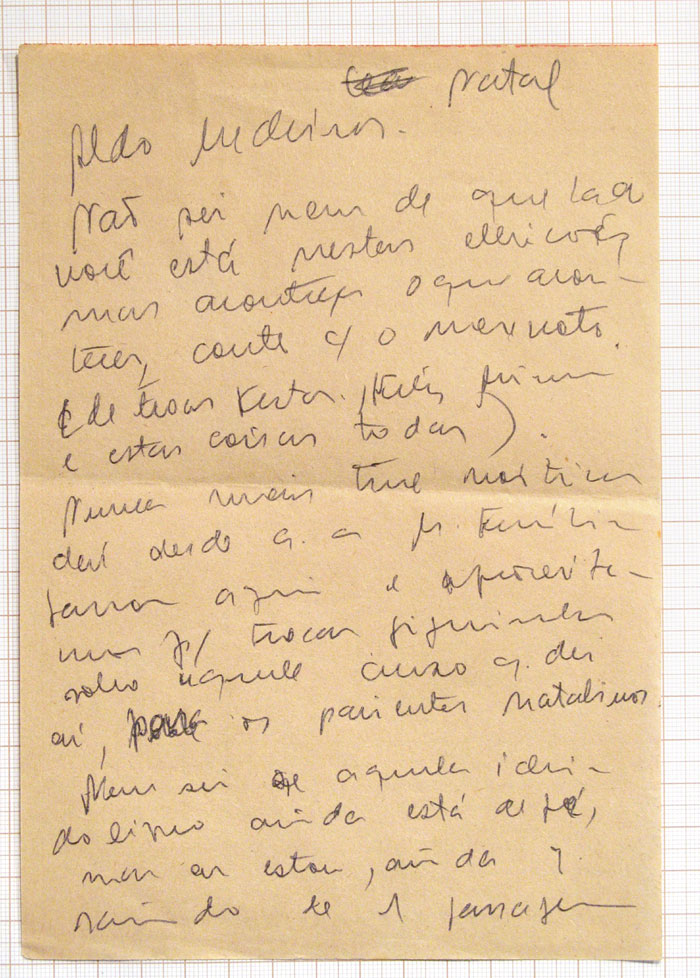 Natal
Aldo Medeiros.
Não sei nem de que lado
você está nestas eleições
mas aconteça o que acon-
tecer, conte c/ o meu voto.
(de boas festas. Feliz
e estas coisas todas).
Nunca mais tive notícias
daí desde q. a
passou aqui e aproveita-
mos p/ trocar figurinhas
sobre aquele curso q. dei
aí, para os parientes natalinos.
Nem sei se aquela ideia
do livro ainda está de pé,
mas eu estou, ainda q.
saindo de 1 passagem